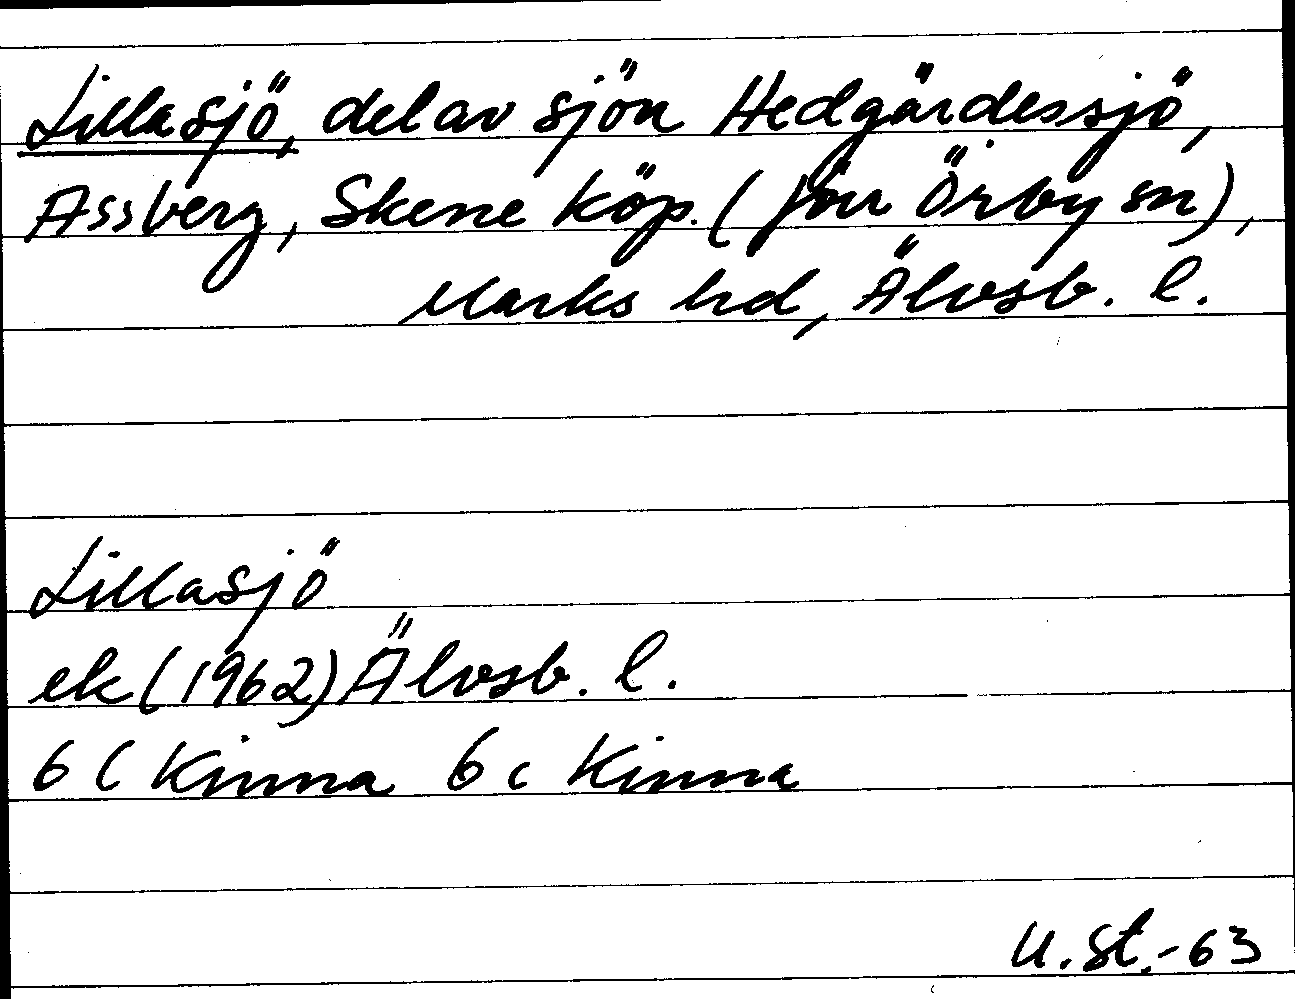 Lillasjö, del av sjön Hedgärdessjö,
Assberg, Skene köp. (förr Örby sn),
Marks hd, Älvsb. l.
Lillasjö
ek (1962) Älvsb. l.
6 C Kinna 6 c Kinna
U. St. -63